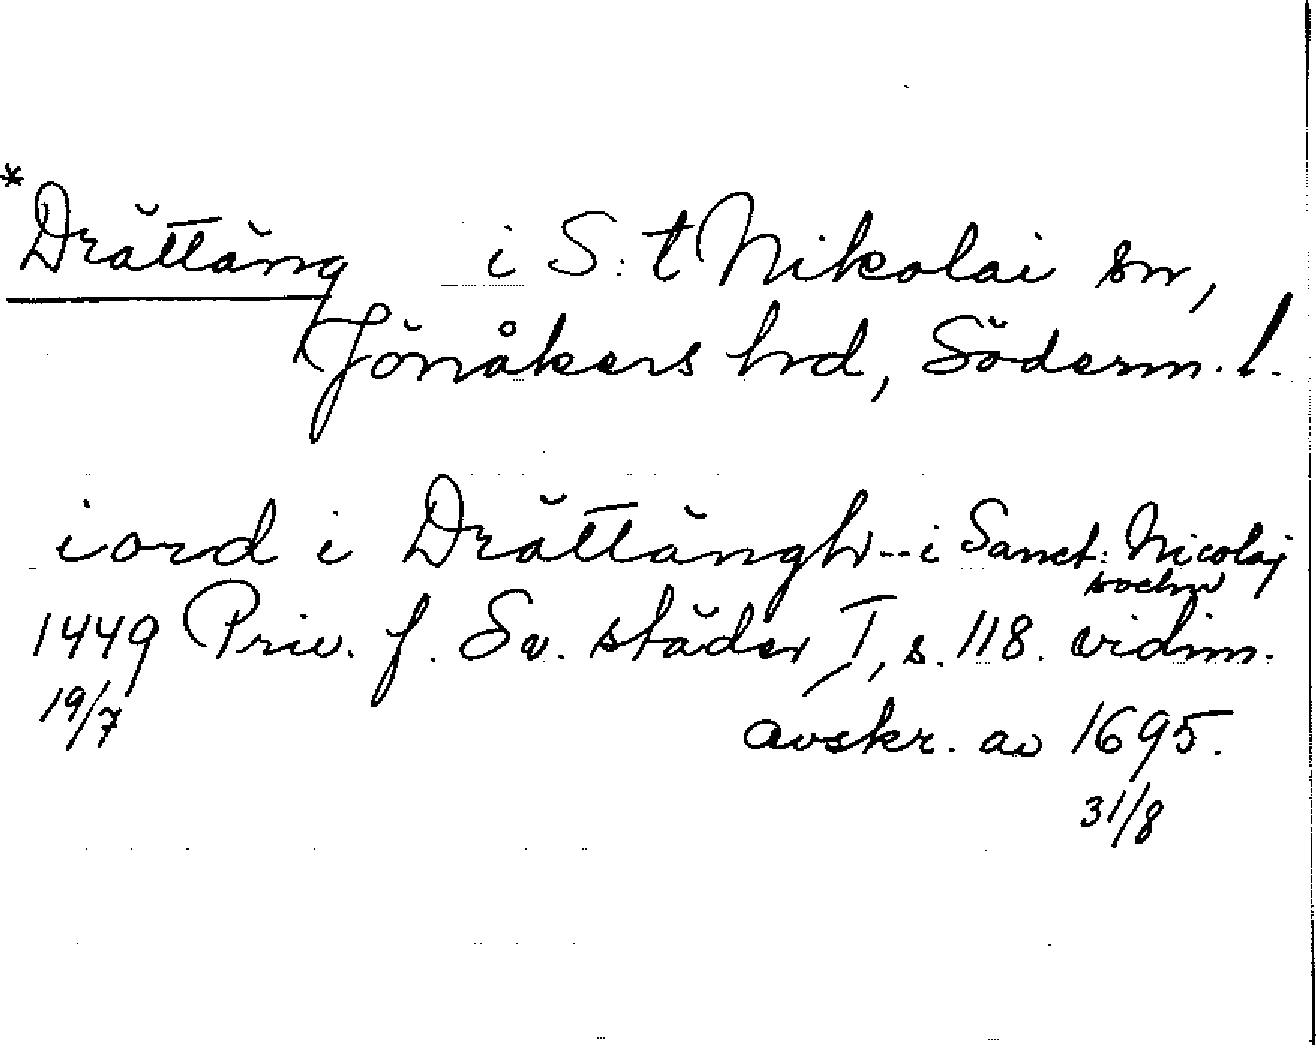 *Drättäng i S:t Nikolai sn,
Jönåkers hd, Söderm. l.
iord i Drättängh -- i Sanct: Nicolaj
sochn
1449 Priv. f. Sv. städer I, s. 118. vidim.
19/7
avskr. av 1695.
31/8